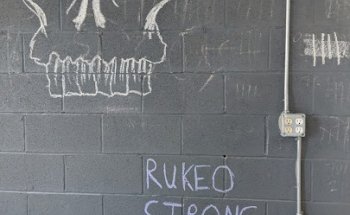 RUKEO
STRONG